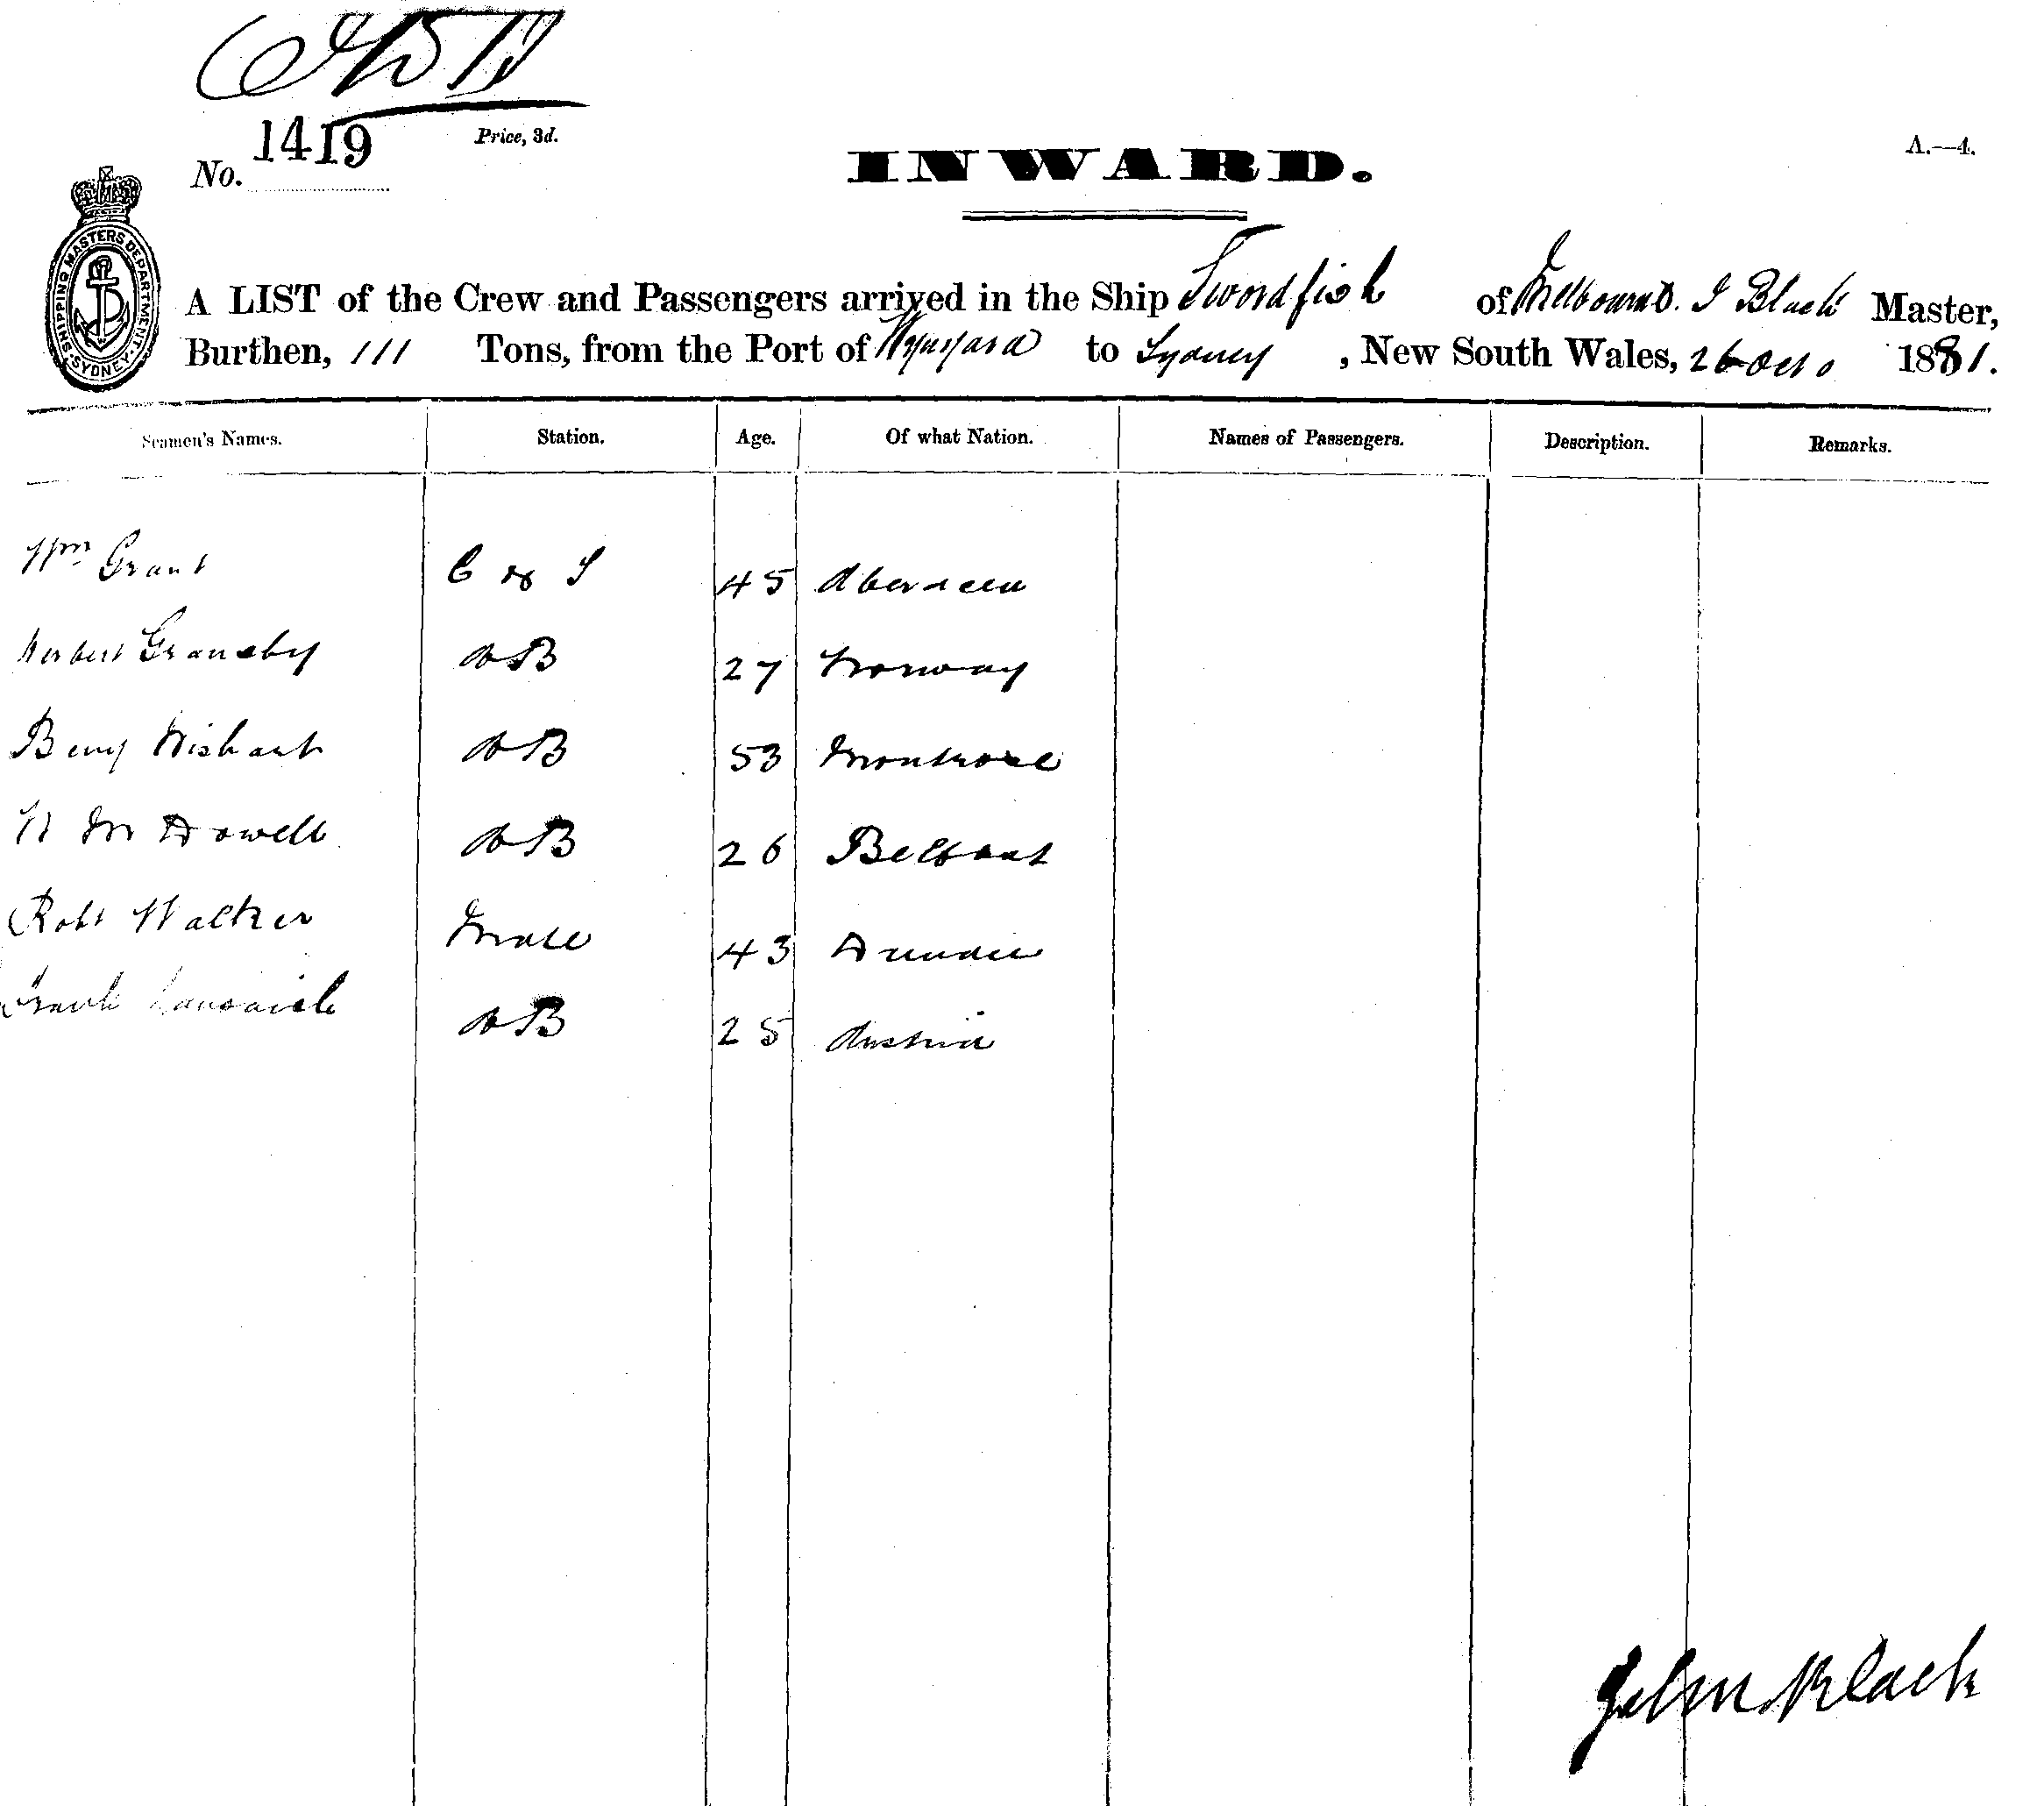 No. 1419 Price, 3d.
INWARD. A.—4.
SHIPPING MASTERS DEPARTMENT. SYDNEY.
A LIST of the Crew and Passengers arrived in the Ship Swordfish of Melbourne. J Black Master,
Burthen, 111 Tons, from the Port of Wynyard to Sydney, New South Wales, 26 Octo 1881.
Seamen's Names. Station. Age. Of what Nation. Names of Passengers. Description. Remarks.
Wm Grant C & S 45 Aberdeen
Herbert Gransby AB 27 Norway
Benj Wishart AB 53 Montrose
W McDowell AB 26 Belfast
Robt Walker Mate 43 Dundee
Frank AB 25 Austria
John Black